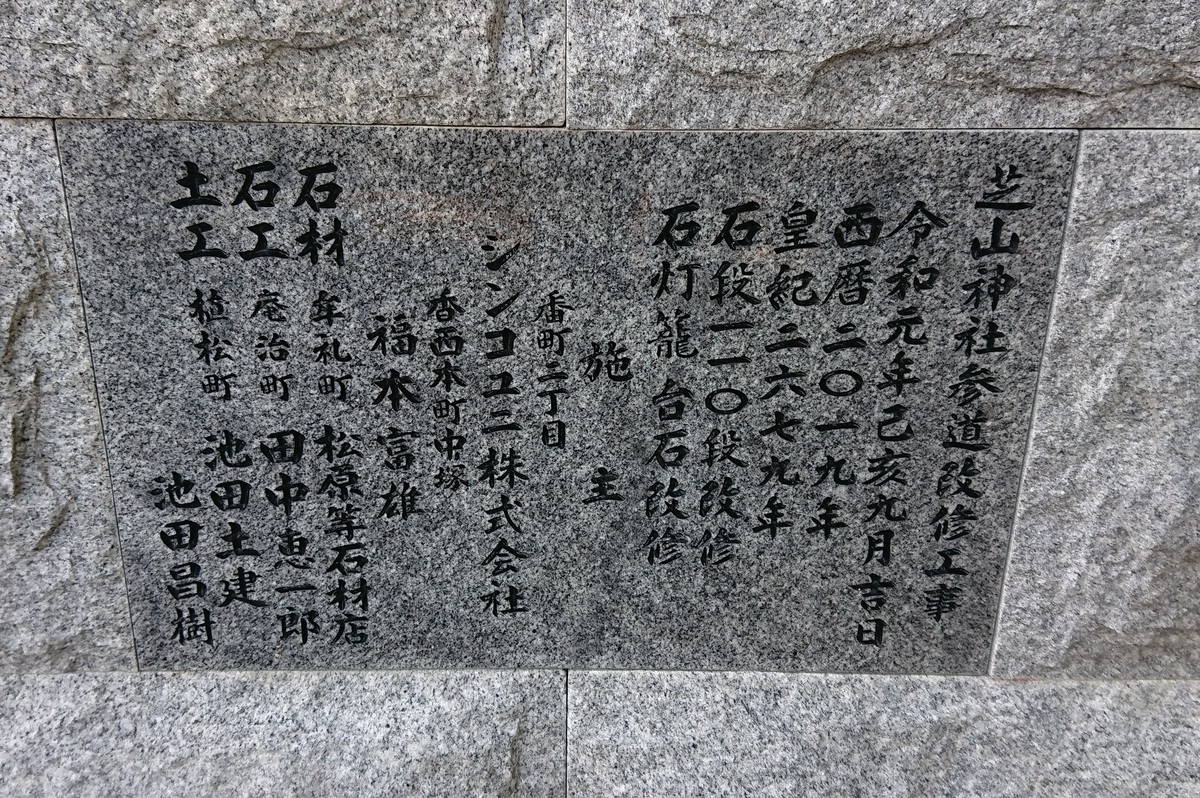 芝山神社参道改修工事
令和元年己亥九月吉日
西暦二〇一九年
皇紀二六七九年
石段一一〇段改修
石灯籠 台石改修
施 主
番町二丁目
シンコユニ株式会社
香西本町中塚
福本富雄
石材 牟礼町 松原等石材店
石工 庵治町 田中恵一郎
土工 植松町 池田土建
池田昌樹